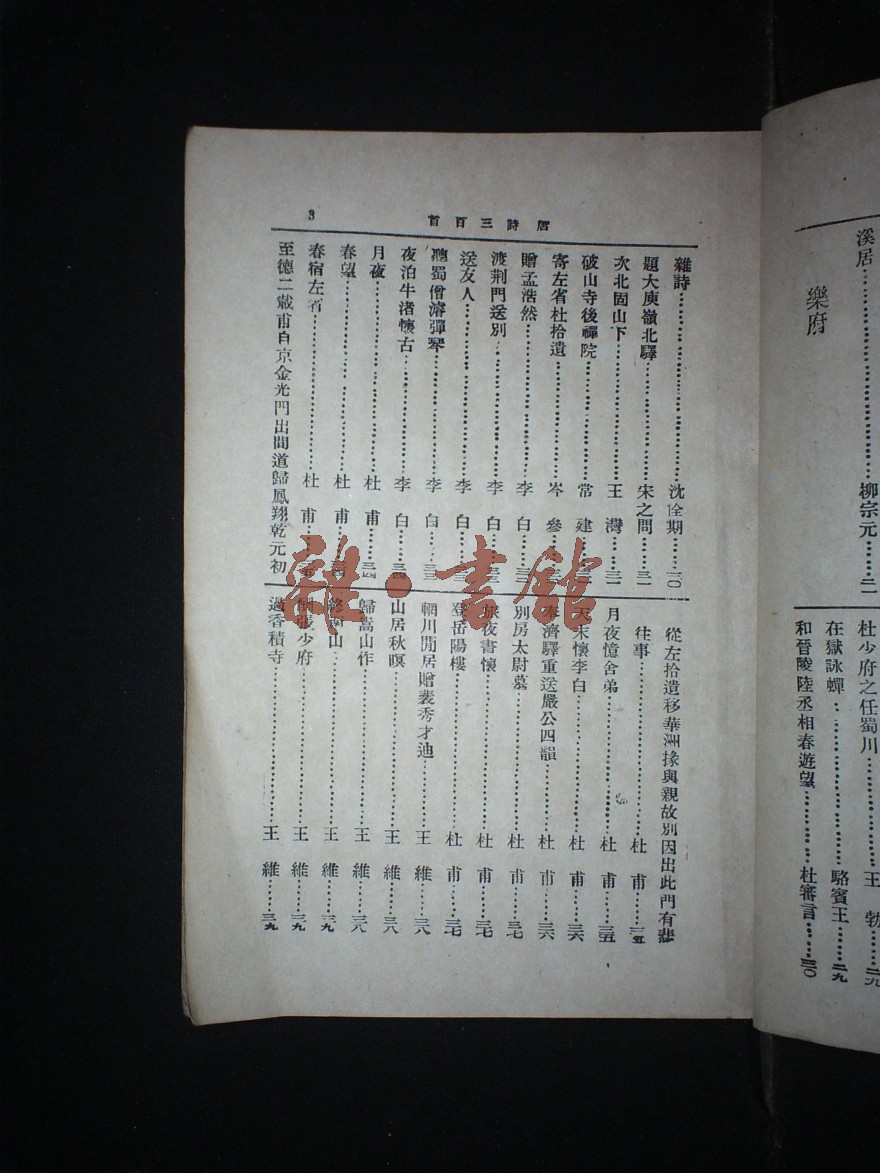 唐詩三百首
3
雜詩……沈佺期……三〇
題大庾嶺北驛……宋之問……三一
次北固山下……王灣……三一
破山寺後禪院……常建
寄左省杜拾遺……岑參
贈孟浩然……李白
渡荆門送別……李白
送友人……李白
聽蜀僧濬彈琴……李白……三三
夜泊牛渚懷古……李白……三四
月夜……杜甫……三四
春望……杜甫
春宿左省……杜甫
至德二載甫自京金光門出間道歸鳳翔乾元初
從左拾遺移華洲掾與親故別因出此門有悲
往事……杜甫……三五
月夜憶舍弟……杜甫……三五
天末懷李白……杜甫……三六
奉濟驛重送嚴公四韻……杜甫……三六
別房太尉墓……杜甫……三七
旅夜書懷……杜甫……三七
登岳陽樓……杜甫……三七
輞川閒居贈裴秀才迪……王維……三八
山居秋暝……王維……三八
歸嵩山作……王維……三八
終南山……王維……三九
酬張少府……王維……三九
過香積寺……王維……三九
溪居……柳宗元……二一
樂府
杜少府之任蜀川……王勃……二九
在獄詠蟬……駱賓王……二九
和晉陵陸丞相春遊望……杜審言……三〇
雜·書館